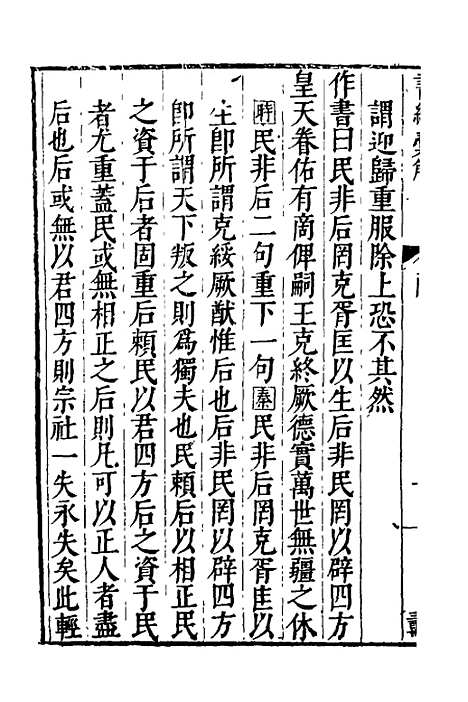 謂迎歸重服除上恐不其然
作書曰民非后罔克胥匡以生后非民罔以辟四方
皇天眷佑有商俾嗣王克終厥德實萬世無疆之休
時民非后二句重下一句秦民非后罔克胥匡以
生卽所謂克綏厥猷惟后也后非民罔以辟四方
卽所謂天下叛之則爲獨夫也民賴后以相正民
之資于后者固重后賴民以君四方后之資于民
者尤重蓋民或無相正之后則凡可以正人者盡
后也后或無以君四方則宗社一失永失矣此輕